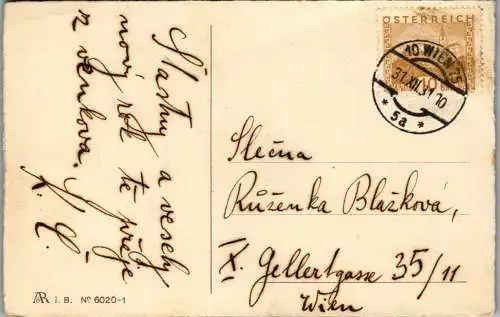 Šťastný a veselý
nový rok te přeje
z venkova.
K. Č.
ÖSTERREICH
10 WIEN 75
31.XII.31.10
* 5a *
Slečna
Růženka Blažková,
X. Gellertgasse 35/11
Wien
AR i. B. No 6020-1